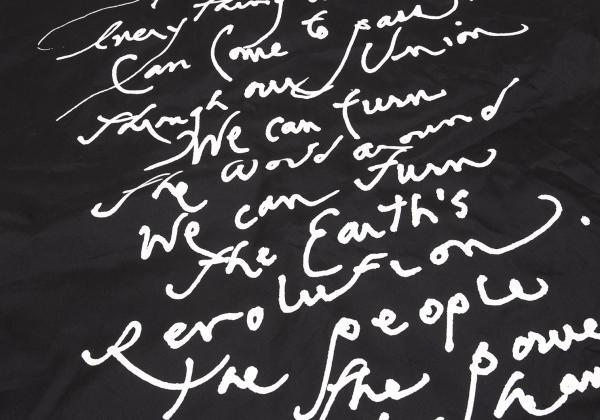 every thing
Can Come to pass
through our Union
We can turn
the World around
We can turn
the Earth's
Revolution.
The people
the power